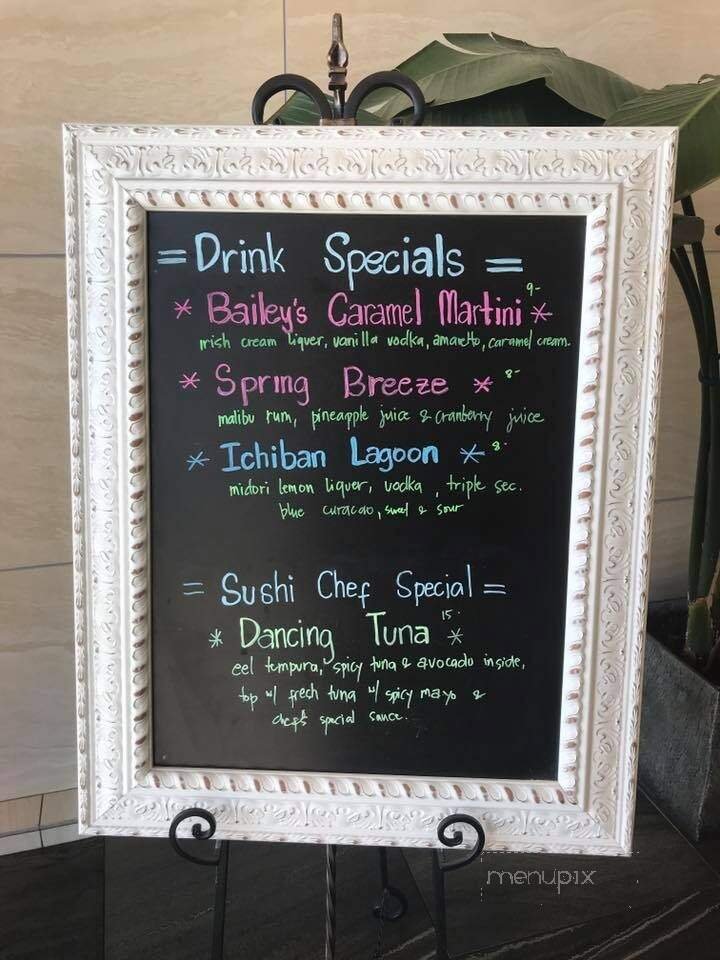 = Drink Specials =
* Bailey's Caramel Martini * 9-
irish cream liquer, vanilla vodka, amaretto, caramel cream.
* Spring Breeze * 8-
malibu rum, pineapple juice & cranberry juice
* Ichiban Lagoon * 8-
midori lemon liquer, vodka, triple sec.
blue curacao, sweet & sour
= Sushi Chef Special =
* Dancing Tuna * 15-
eel tempura, spicy tuna & avocado inside,
top w/ frech tuna w/ spicy mayo &
chef's special sauce.
menupix